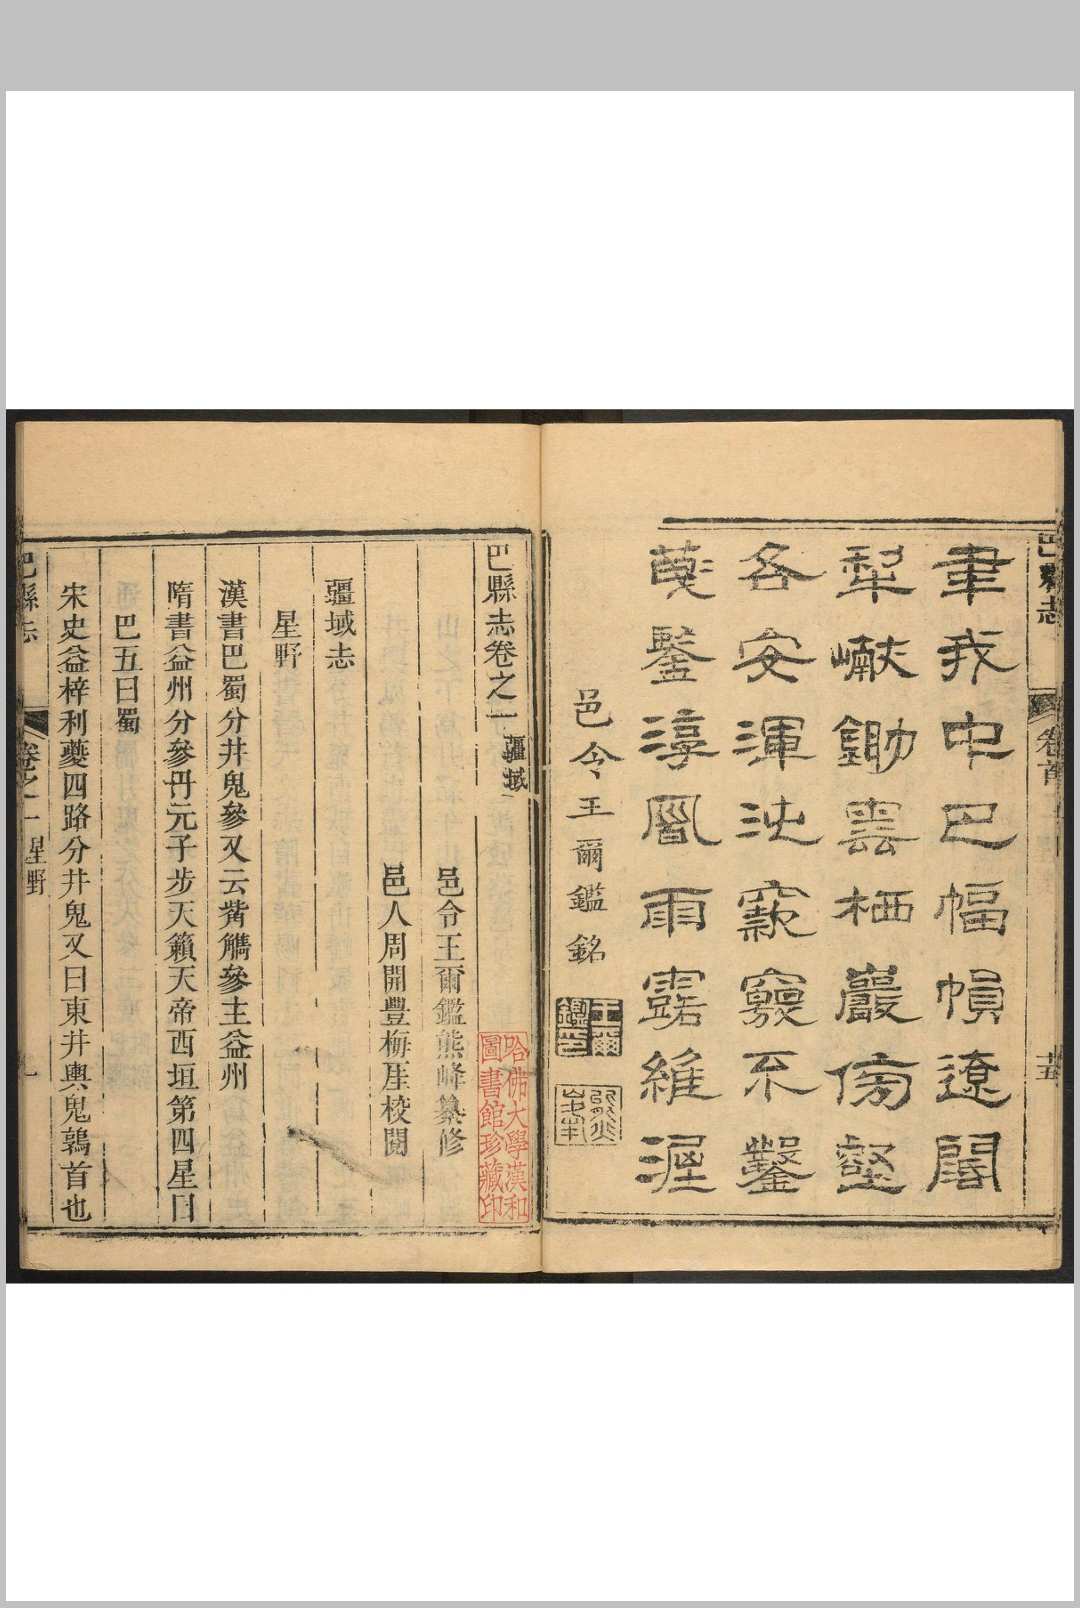 巴縣志
卷首
十五
聿我中巴幅幀遼闊
犁巘鋤雲栖巖傍壑
各安渾沌窾竅不鑿
淳風雨露維渥
邑令王爾鑑銘
巴縣志卷之一 疆域
邑令王爾鑑熊峰纂修
邑人周開豐梅厓校閱
哈佛大學漢和
圖書館珍藏印
疆域志
星野
漢書巴蜀分井鬼參又云觜觿參主益州
隋書益州分參丹元子步天籟天帝西垣第四星曰
巴五曰蜀
宋史益梓利夔四路分井鬼又曰東井輿鬼鶉首也
巴縣志
卷之一 星野